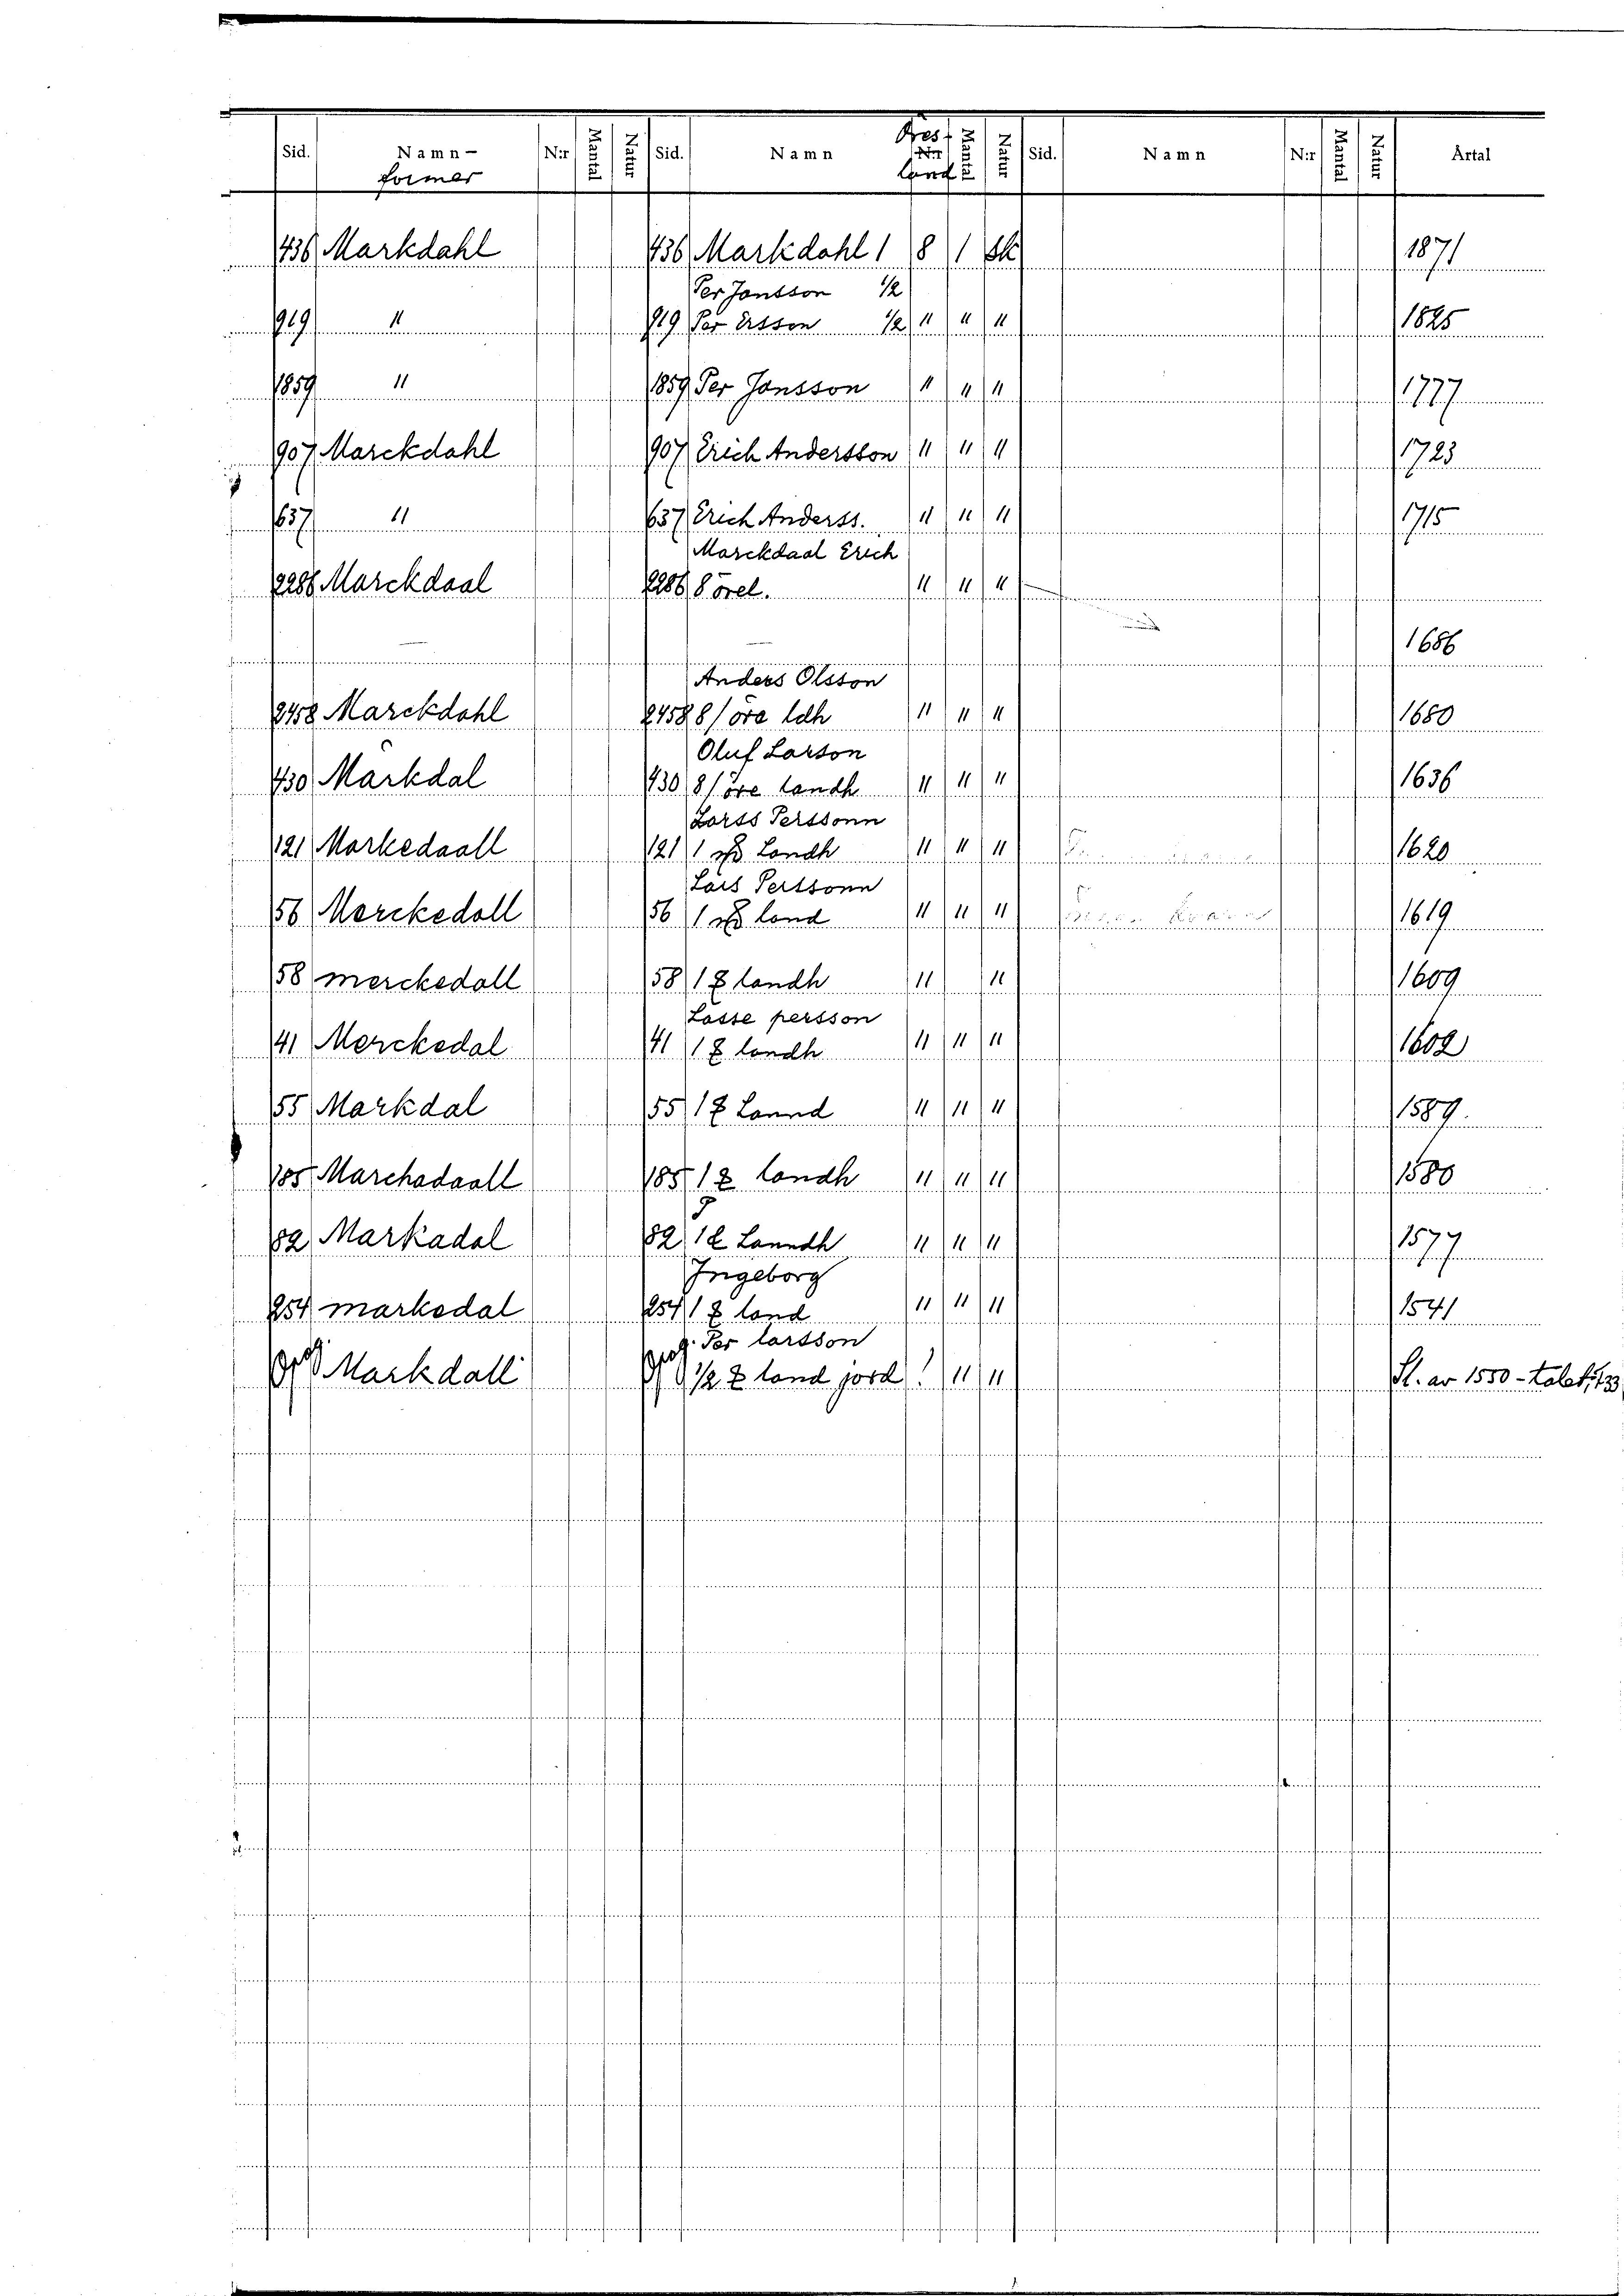 Sid. Namn- Nr Mantal Natur Sid. Namn Öres- Nr Mantal Natur Sid. Namn Nr Mantal Natur Årtal
former land
436 Markdahl 436 Markdahl 1 8 1 Sk 1871
Per Jansson 1/2
919 " 919 Per Ersson 1/2 " " " 1825
1859 " 1859 Per Jansson " " " 1777
907 Marckdahl 907 Erich Andersson " " " 1723
637 " 637 Erich Anderss. " " " 1715
Marckdaal Erich
2286 Marckdaal 2286 8 örel. " " "
1686
Anders Olsson
2458 Marckdahl 2458 8/öre ldh " " " 1680
Oluf Larson
430 Markdal 430 8/öre landh " " " 1636
Larss Perssonn
121 Markedaall 121 1 Landh " " " 1620
Lars Perssonn
56 Merckedall 56 1 land " " " 1619
58 merckedall 58 1 landh " " 1609
Lasse persson
41 Merckedal 41 1 landh " " " 1602
55 Markdal 55 1 Lannd " " " 1589
185 Marchadaall 185 1 landh " " " 1580
82 Markadal 82 1 Lanndh " " " 1577
Ingeborg
254 markedal 254 1 land " " " 1541
Per larsson
Markdall 1/2 land jord ! " " Sl. av 1550-talet, 133